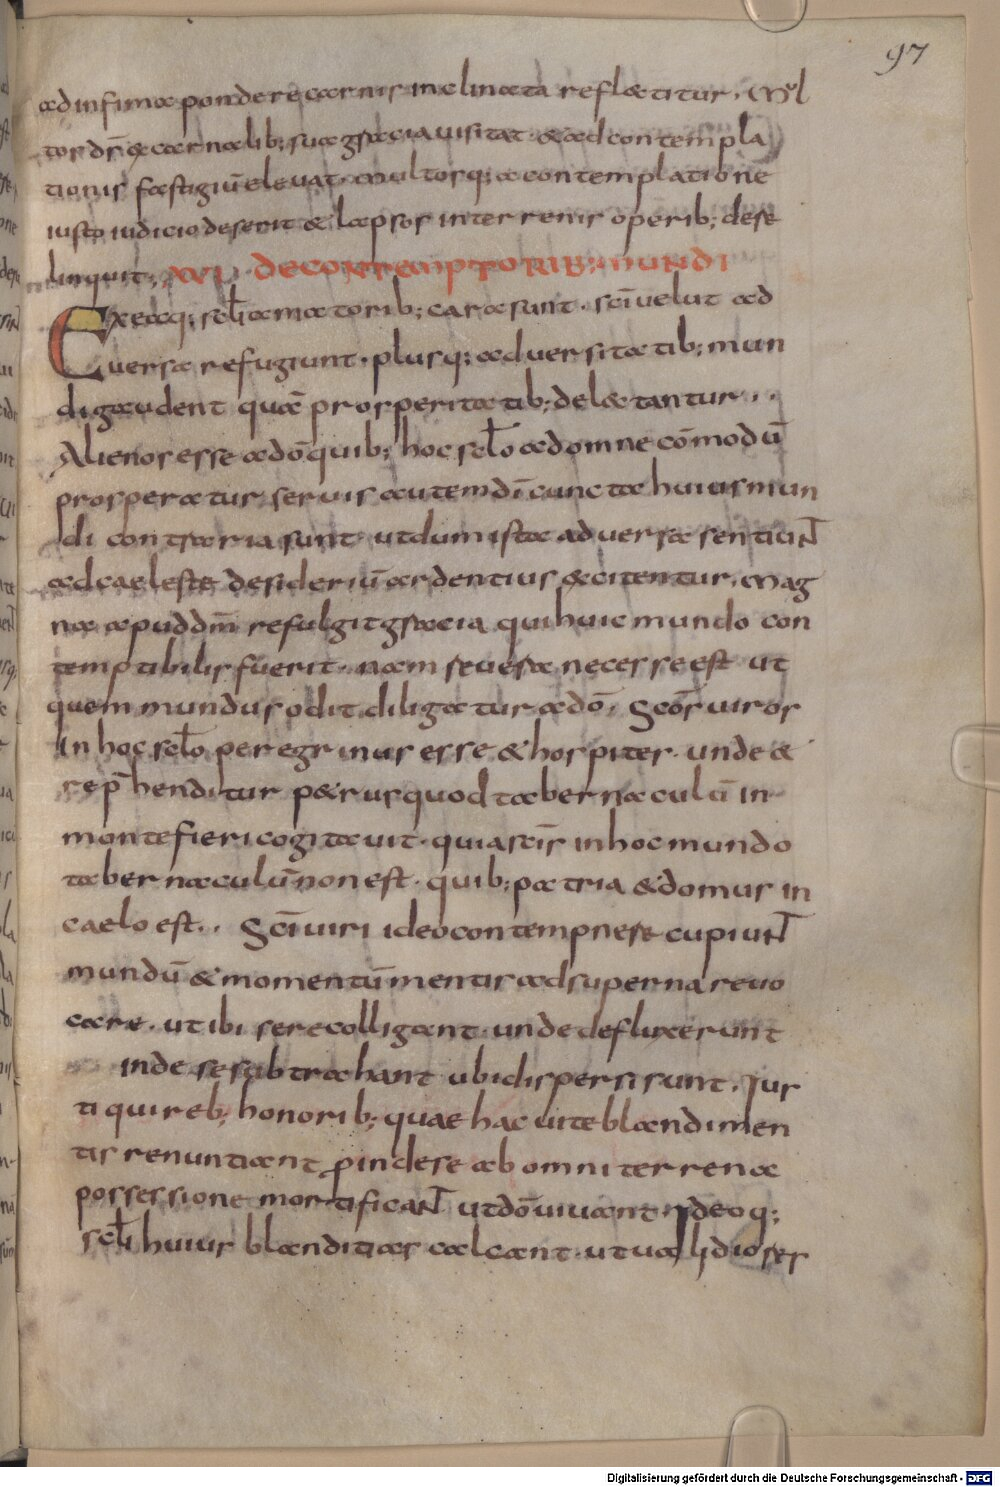 97
ad infima pondere carnis inclinata reflectitur. Mul
tos ds̄ ex carnalib; sua gracia uisitat & ad contempla
tionis fastigiū eleuat. multosq; a contemplationē
iusto iudicio deserit & lapsos in terrenis operib; dere
linquit; XVI. DE CONTEMPTORIB; MUNDI
Exeaq; scl̄i amatorib; cara sunt. sc̄i uelut ad
uersa refugiunt. plusq; aduersitatib; mun
di gaudent quā prosperitatib; delectantur..
Alienos esse a dō quib; hoc scl̄o ad omne cōmodū
prosperatur. seruis autem dī cuncta huius mun
di contraria sunt. ut dum ista aduersa sentiunt
ad caeleste desideriū ardentius excitentur. Mag
na apud dm̄ refulgit gracia qui huic mundo con
temptibilis fuerit. nam reuera necesse est ut
quem mundus odit diligatur a dō. Scōs uiros
in hoc scl̄o peregrinus esse & hospites. unde &
rep̄henditur petrus quod tabernaculū in
monte fieri cogitauit. quia sc̄is in hoc mundo
tabernaculū non est. quib; patria & domus in
caelo est.. Sc̄i uiri ideo contempnere cupiunt
mundū & momentū mentis ad superna reuo
care. ut ibi se recolligant unde defluxerunt
inde se subtrahant ubi dispersi sunt. Ius
ti qui reb; honorib; quae hac uite blandimen
tis renuntiant proinde se ab omni terrena
possessione mortificant ut dō uiuant ideoq;
scl̄i huius blanditias calcant. ut ualidiores
Digitalisierung gefördert durch die Deutsche Forschungsgemeinschaft - DFG